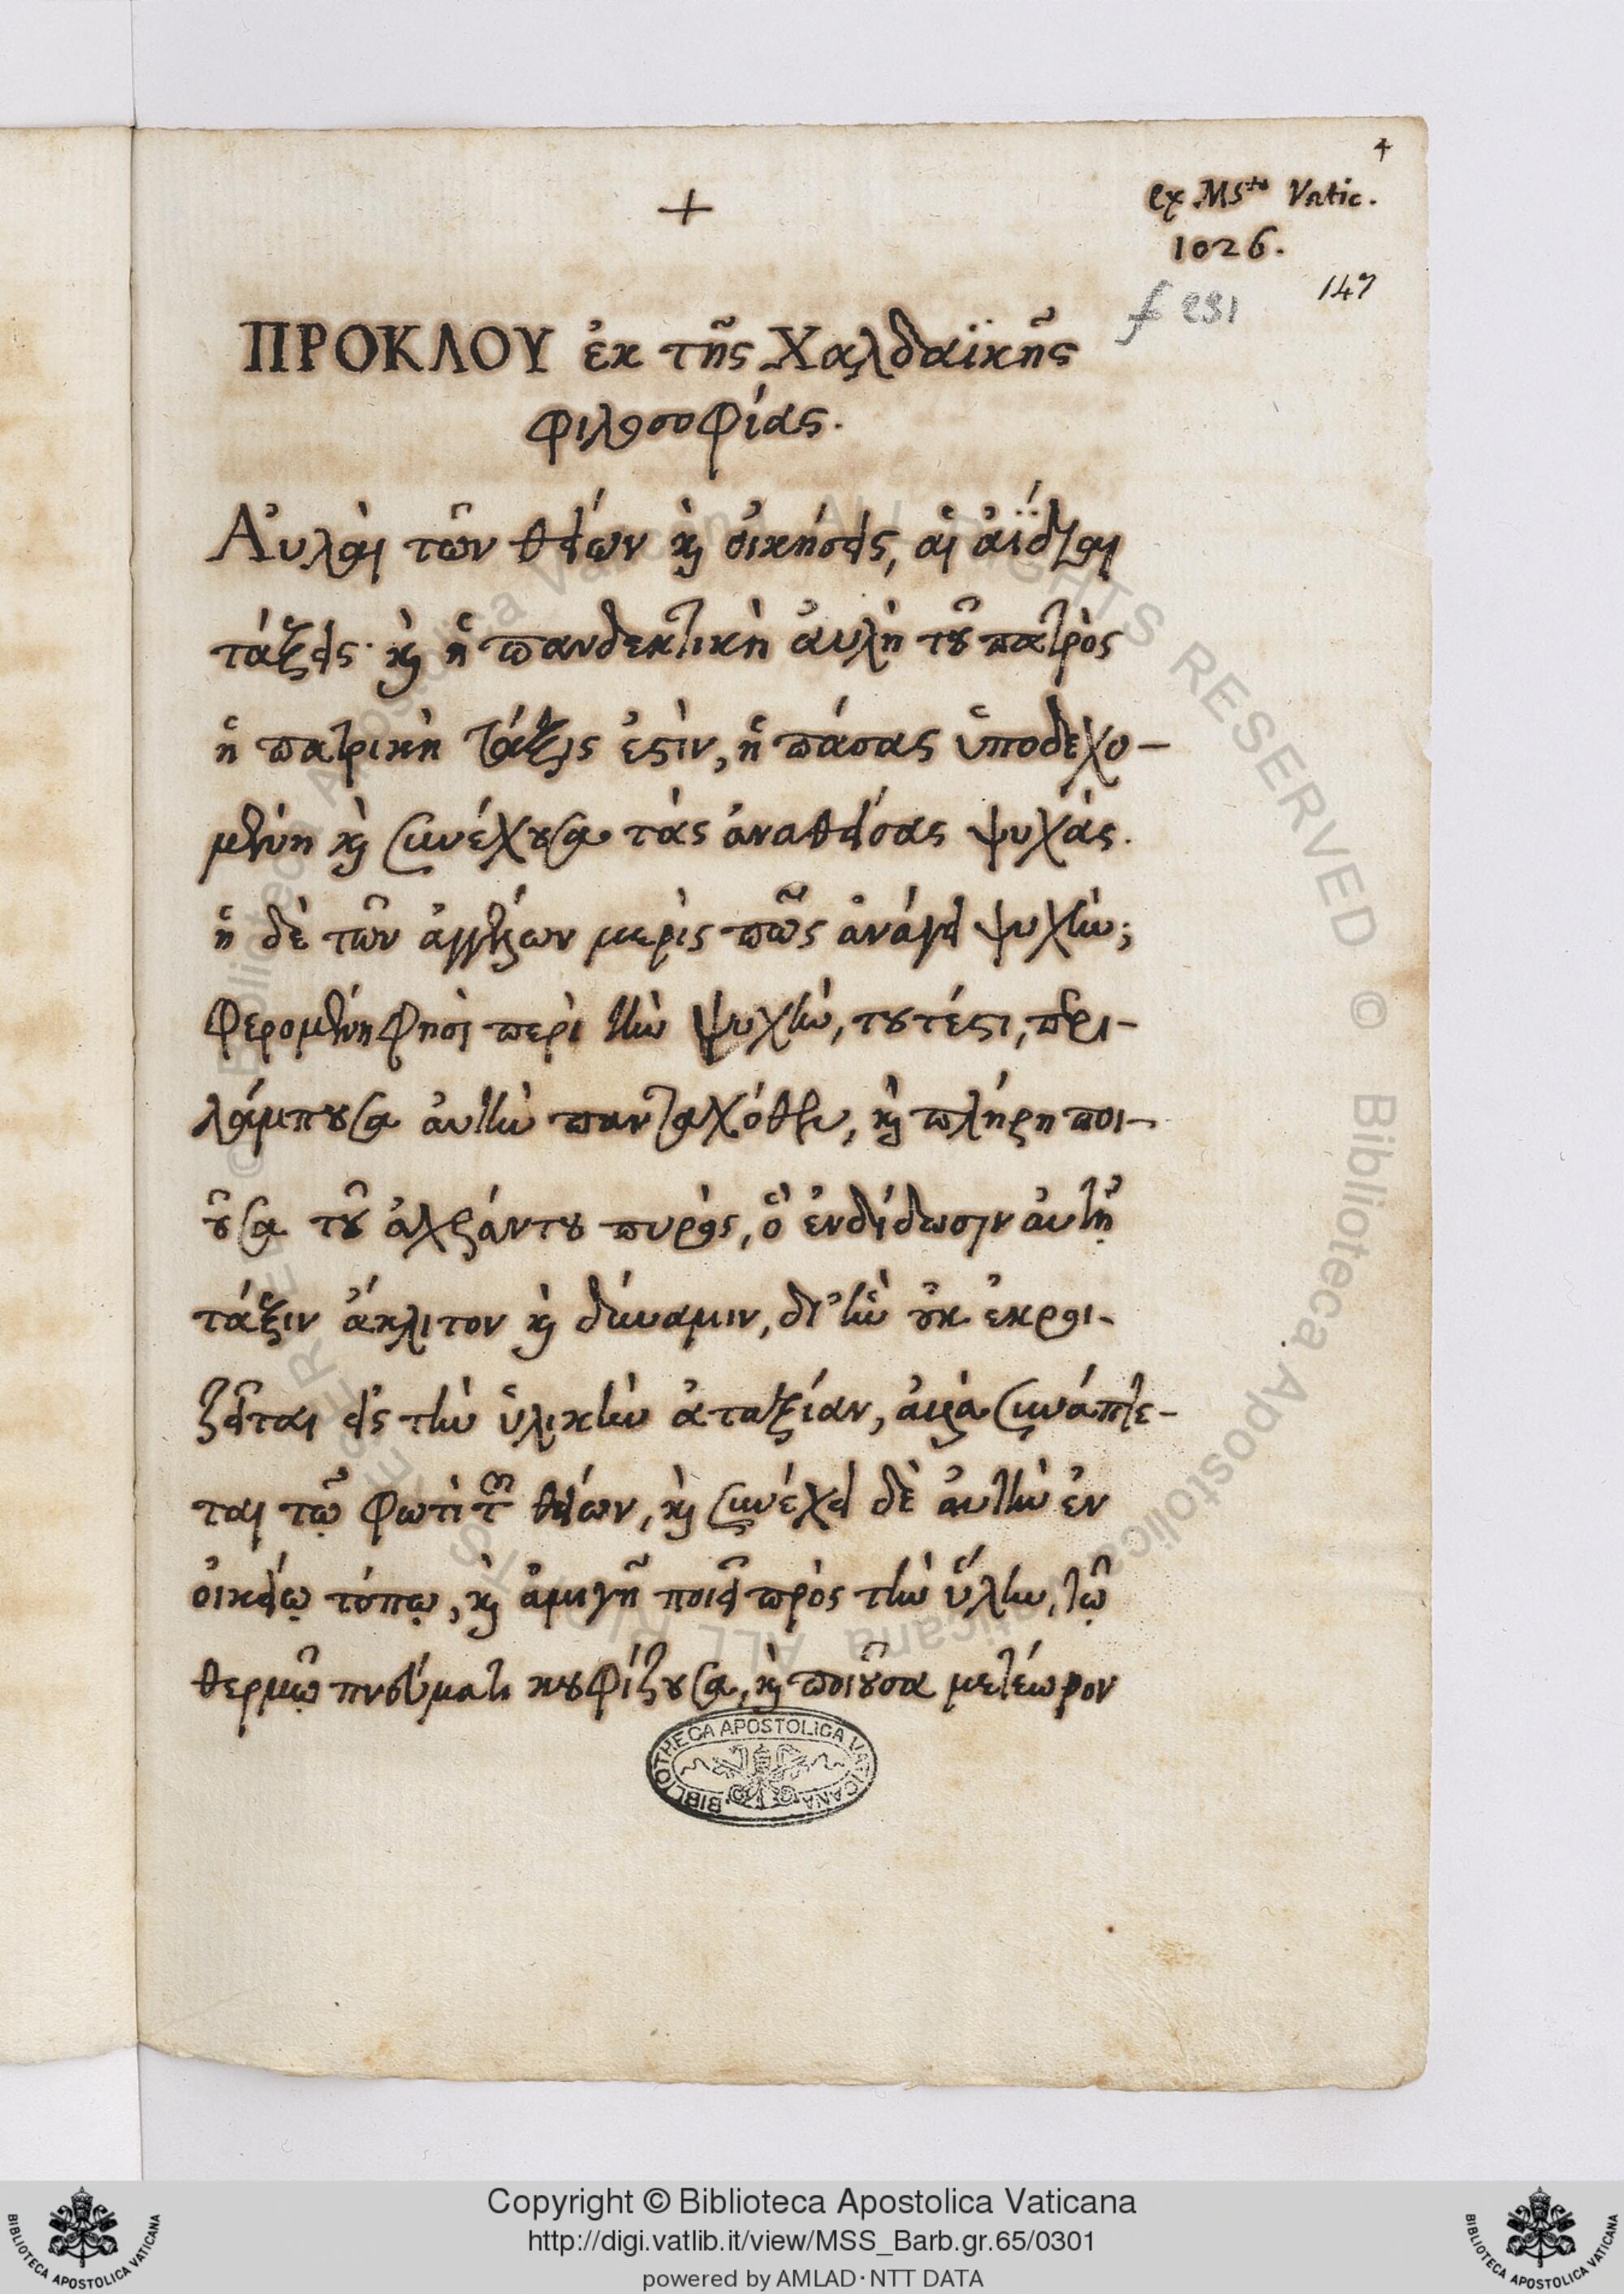 4
+
ex MSto Vatic.
1026.
147
f 231
ΠΡΟΚΛΟΥ ἐκ τῆς Χαλδαϊκῆς
φιλοσοφίας.
Αὐλαὶ τῶν θείων καὶ οἰκήσεις, αἱ ἀΐδιοι
τάξεις· καὶ ἡ πανδεκτικὴ ἀυλὴ τοῦ πατρὸς
ἡ πατρικὴ τάξις ἐστὶν, ἡ πάσας ὑποδεχο-
μένη καὶ συνέχουσα τὰς ἀναθείσας ψυχάς.
ἡ δὲ τῶν ἀγγέλων μερὶς πῶς ἀνάγει ψυχὴν;
φερομένη φησὶ περὶ τὴν ψυχὴν, τουτέστι, περι-
λάμπουσα ἀυτὴν πανταχόθεν, καὶ πλήρη ποι-
οῦσα τοῦ ἀχράντου πυρὸς, ὃ ἐνδίδωσιν ἀυτῇ
τάξιν ἄκλιτον καὶ δύναμιν, δι' ἣν οὐκ ἐκροι-
ζεῖται εἰς τὴν ὑλικὴν ἀταξίαν, ἀλλὰ συνάπτε-
ται τῷ φωτὶ τῶν θείων, καὶ συνέχει δὲ ἀυτὴν ἐν
οἰκείῳ τόπῳ, καὶ ἀμιγῆ ποιεῖ πρὸς τὴν ὕλην, τῷ
θερμῷ πνεύματι κουφίζουσα, καὶ ποιοῦσα μετέωρον
BIBLIOTHECA APOSTOLICA VATICANA
© Biblioteca Apostolica Vaticana ALL RIGHTS RESERVED © Biblioteca Apostolica Vaticana ALL RIGHTS RESERVED
Copyright © Biblioteca Apostolica Vaticana
http://digi.vatlib.it/view/MSS_Barb.gr.65/0301
powered by AMLAD·NTT DATA
BIBLIOTECA APOSTOLICA VATICANA
BIBLIOTECA APOSTOLICA VATICANA